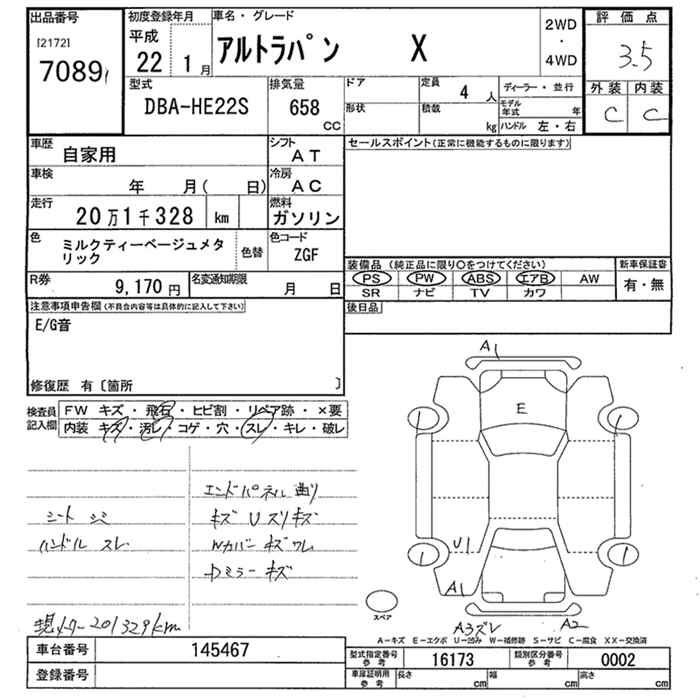 出品番号 初度登録年月 車名・グレード 2WD ・ 4WD 評価点
[2172] 平成 アルトラパン X 3.5
7089 22 1月 外装 内装
型式 排気量 ドア 定員 4 人 ディーラー・並行 C C
DBA-HE22S 658 CC 形状 積載 kg モデル年式 年
ハンドル 左・右
車歴 自家用 シフト AT セールスポイント(正常に機能するものに限ります)
車検 年 月( 日) 冷房 AC
走行 20万1千328 km 燃料 ガソリン
色 ミルクティーベージュメタリック 色替 色コード ZGF
装備品 (純正品に限り○をつけてください) 新車保証書
R券 9,170円 名変通知期限 月 日 PS PW ABS エアB AW 有・無
SR ナビ TV カワ
注意事項申告欄(不具合内容等は具体的に記入して下さい) 後日品
E/G音
修復歴 有〔箇所 〕
検査員記入欄 FW キズ・飛石・ヒビ割・リペア跡・×要
内装 キズ・汚レ・コゲ・穴・スレ・キレ・破レ
A1
E
エンドパネル曲り
シート シミ キズ U スリキズ
ハンドル スレ Wカバー キズ ワレ U1
Dミラー キズ A1
スペア
現メーター201329km A3ズレ A2
A-キズ E-エクボ U-凹み W-補修跡 S-サビ C-腐食 XX-交換済
車台番号 145467 型式指定番号 参考 16173 類別区分番号 参考 0002
登録番号 車庫証明用 参考 長さ cm 幅 cm 高さ cm